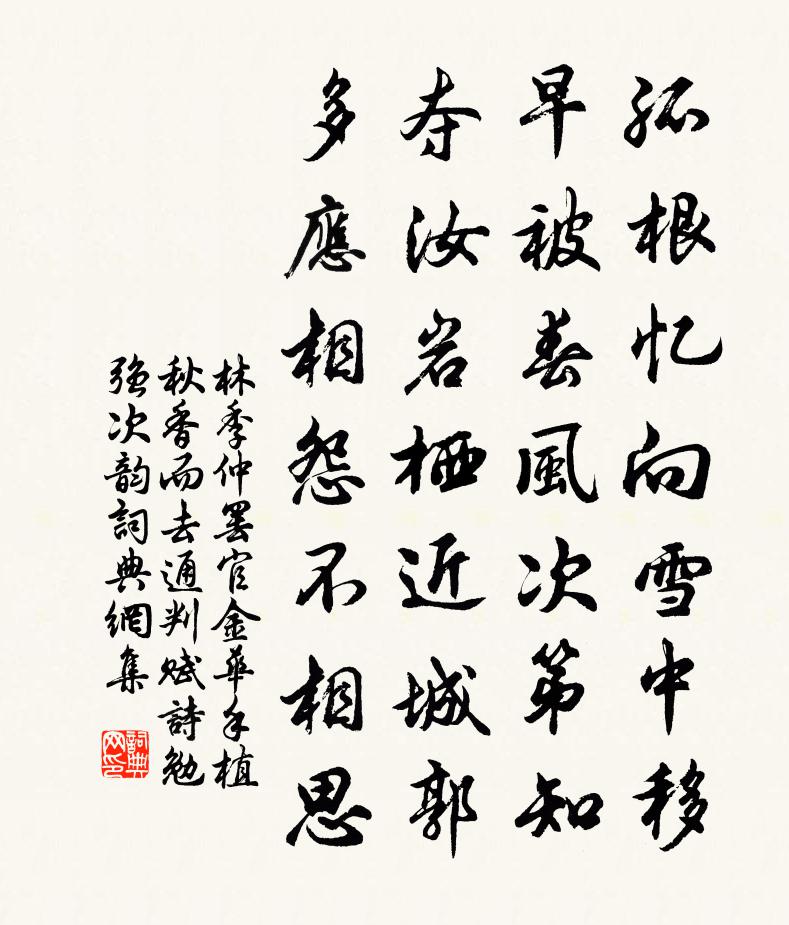 孤根忆向雪中移
早被春風次第知
夺汝岩栖近城郭
多應相怨不相思
林季仲罢官金華手植
秋香而去通判赋詩勉
强次韵詞典網集
詞典网印